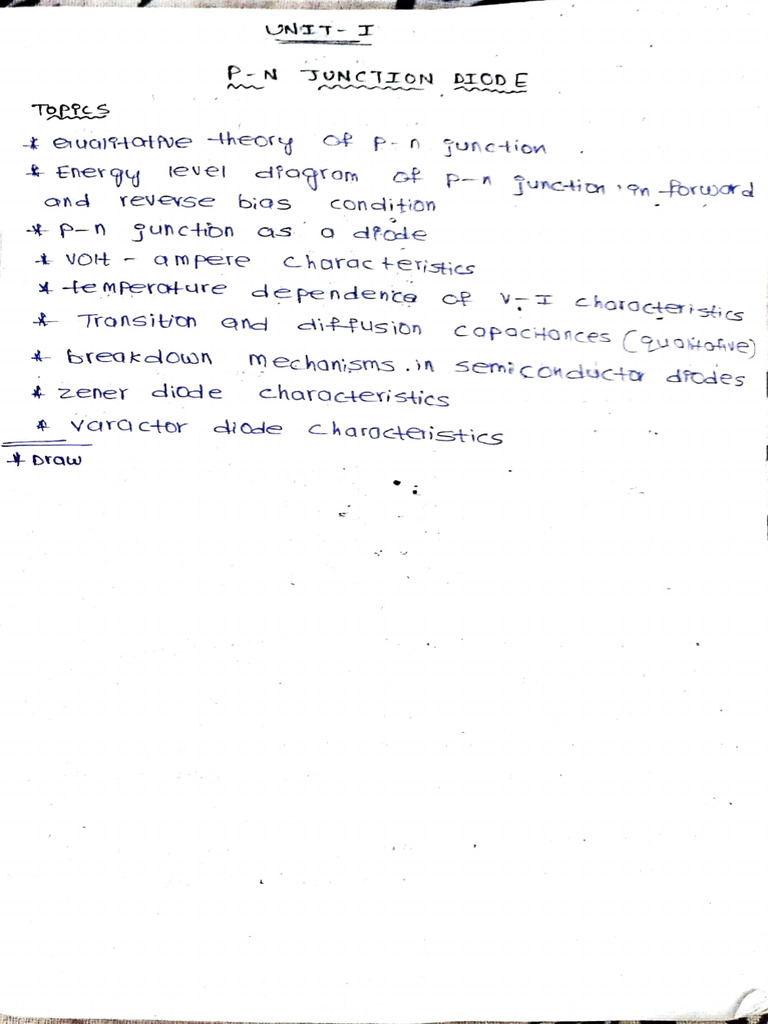 UNIT - I
P-N JUNCTION DIODE
TOPICS
* Qualitative theory of p-n junction.
* Energy level diagram of p-n junction in forward
and reverse bias condition
* p-n junction as a diode
* VOlt - ampere characteristics
* temperature dependence of V-I characteristics
* Transition and diffusion capacitances (qualitative)
* breakdown mechanisms in semiconductor diodes
* zener diode characteristics
* varactor diode characteristics
* Draw